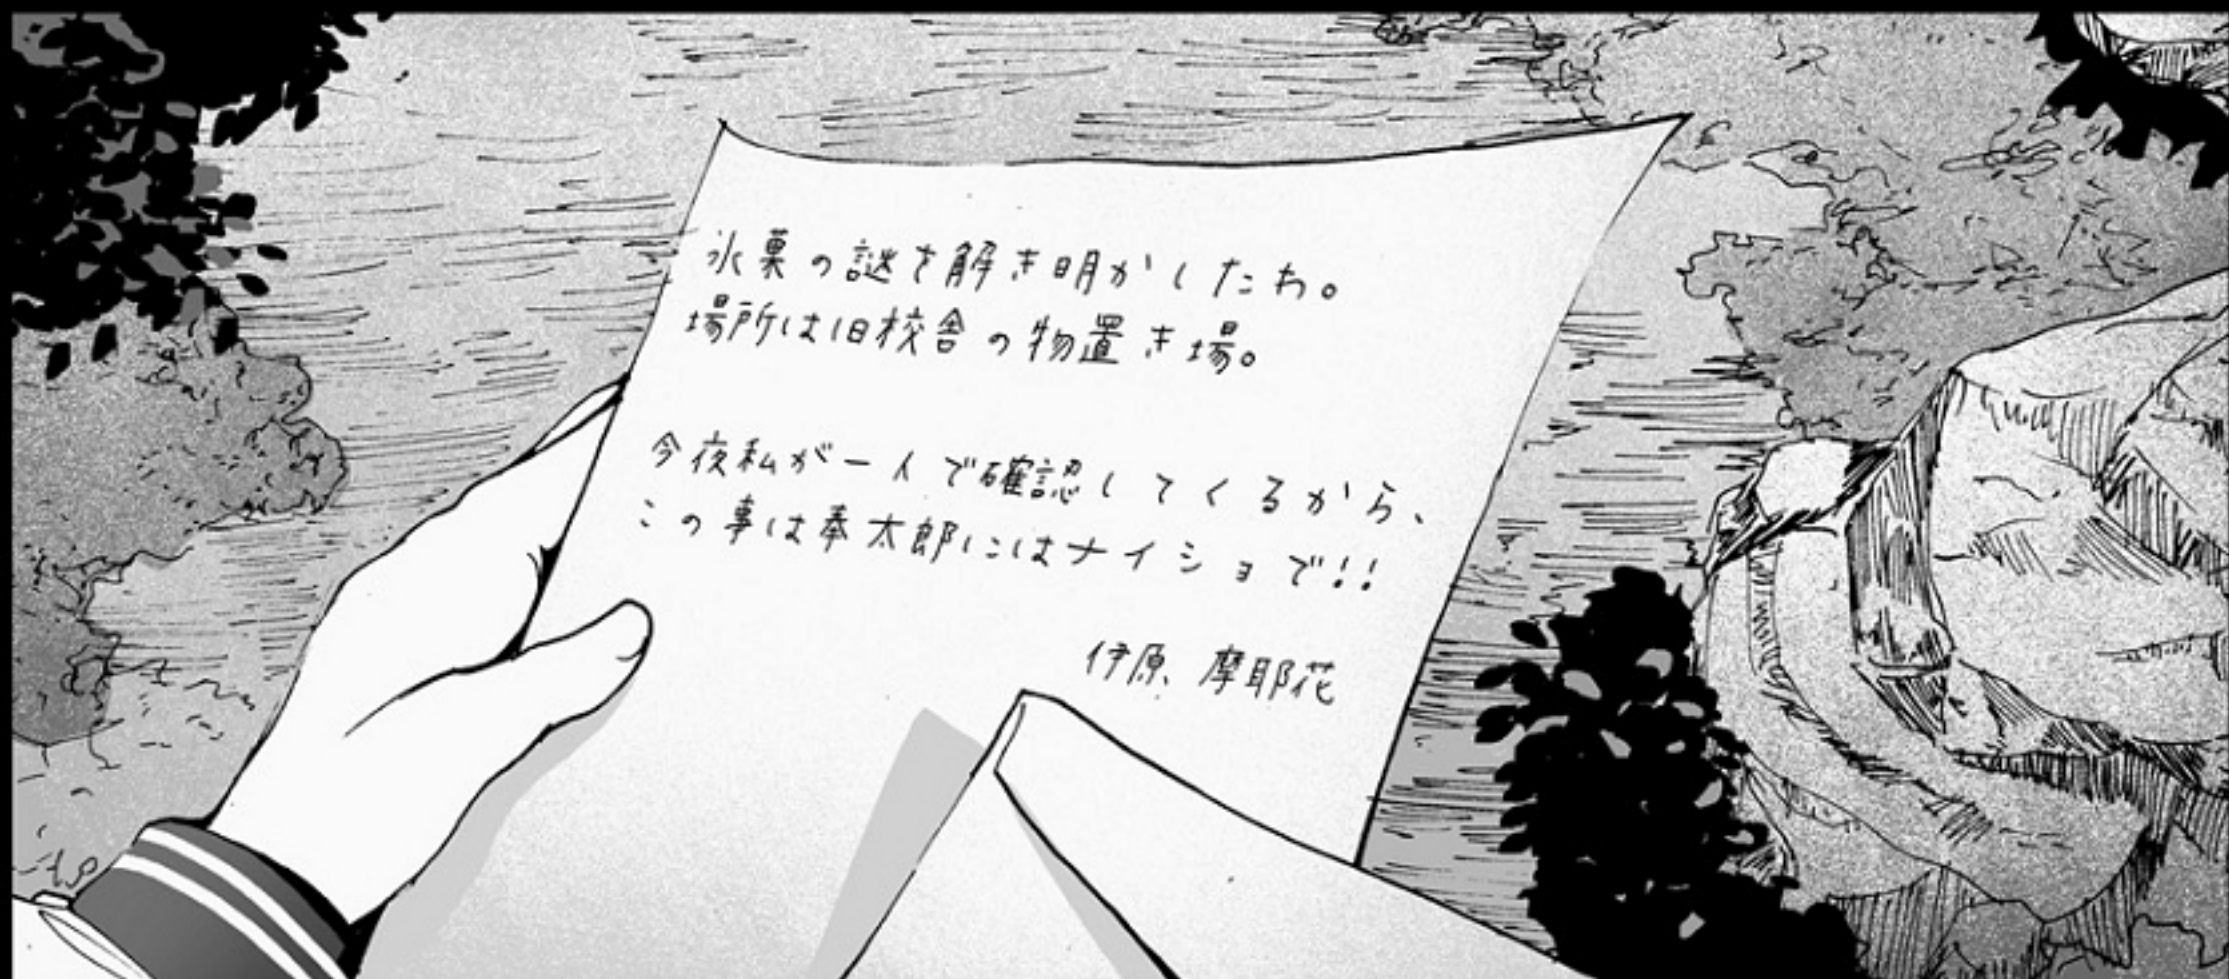 氷菓の謎を解き明かしたわ。
場所は旧校舎の物置き場。
今夜私が一人で確認してくるから、
この事は奉太郎にはナイショで!!
伊原 摩耶花